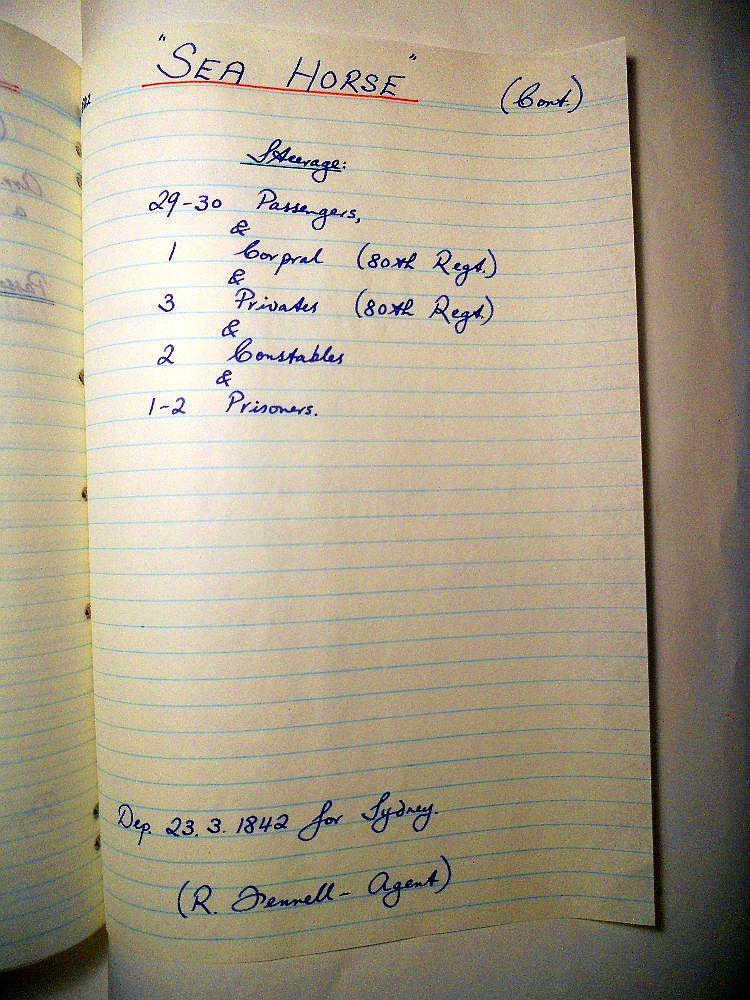 "SEA HORSE"
(Cont.)
Steerage:
29-30 Passengers,
&
1 Corpral (80th Regt.)
&
3 Privates (80th Regt.)
&
2 Constables
&
1-2 Prisoners.
Dep. 23. 3. 1842 for Sydney.
(R. Fennell - Agent)